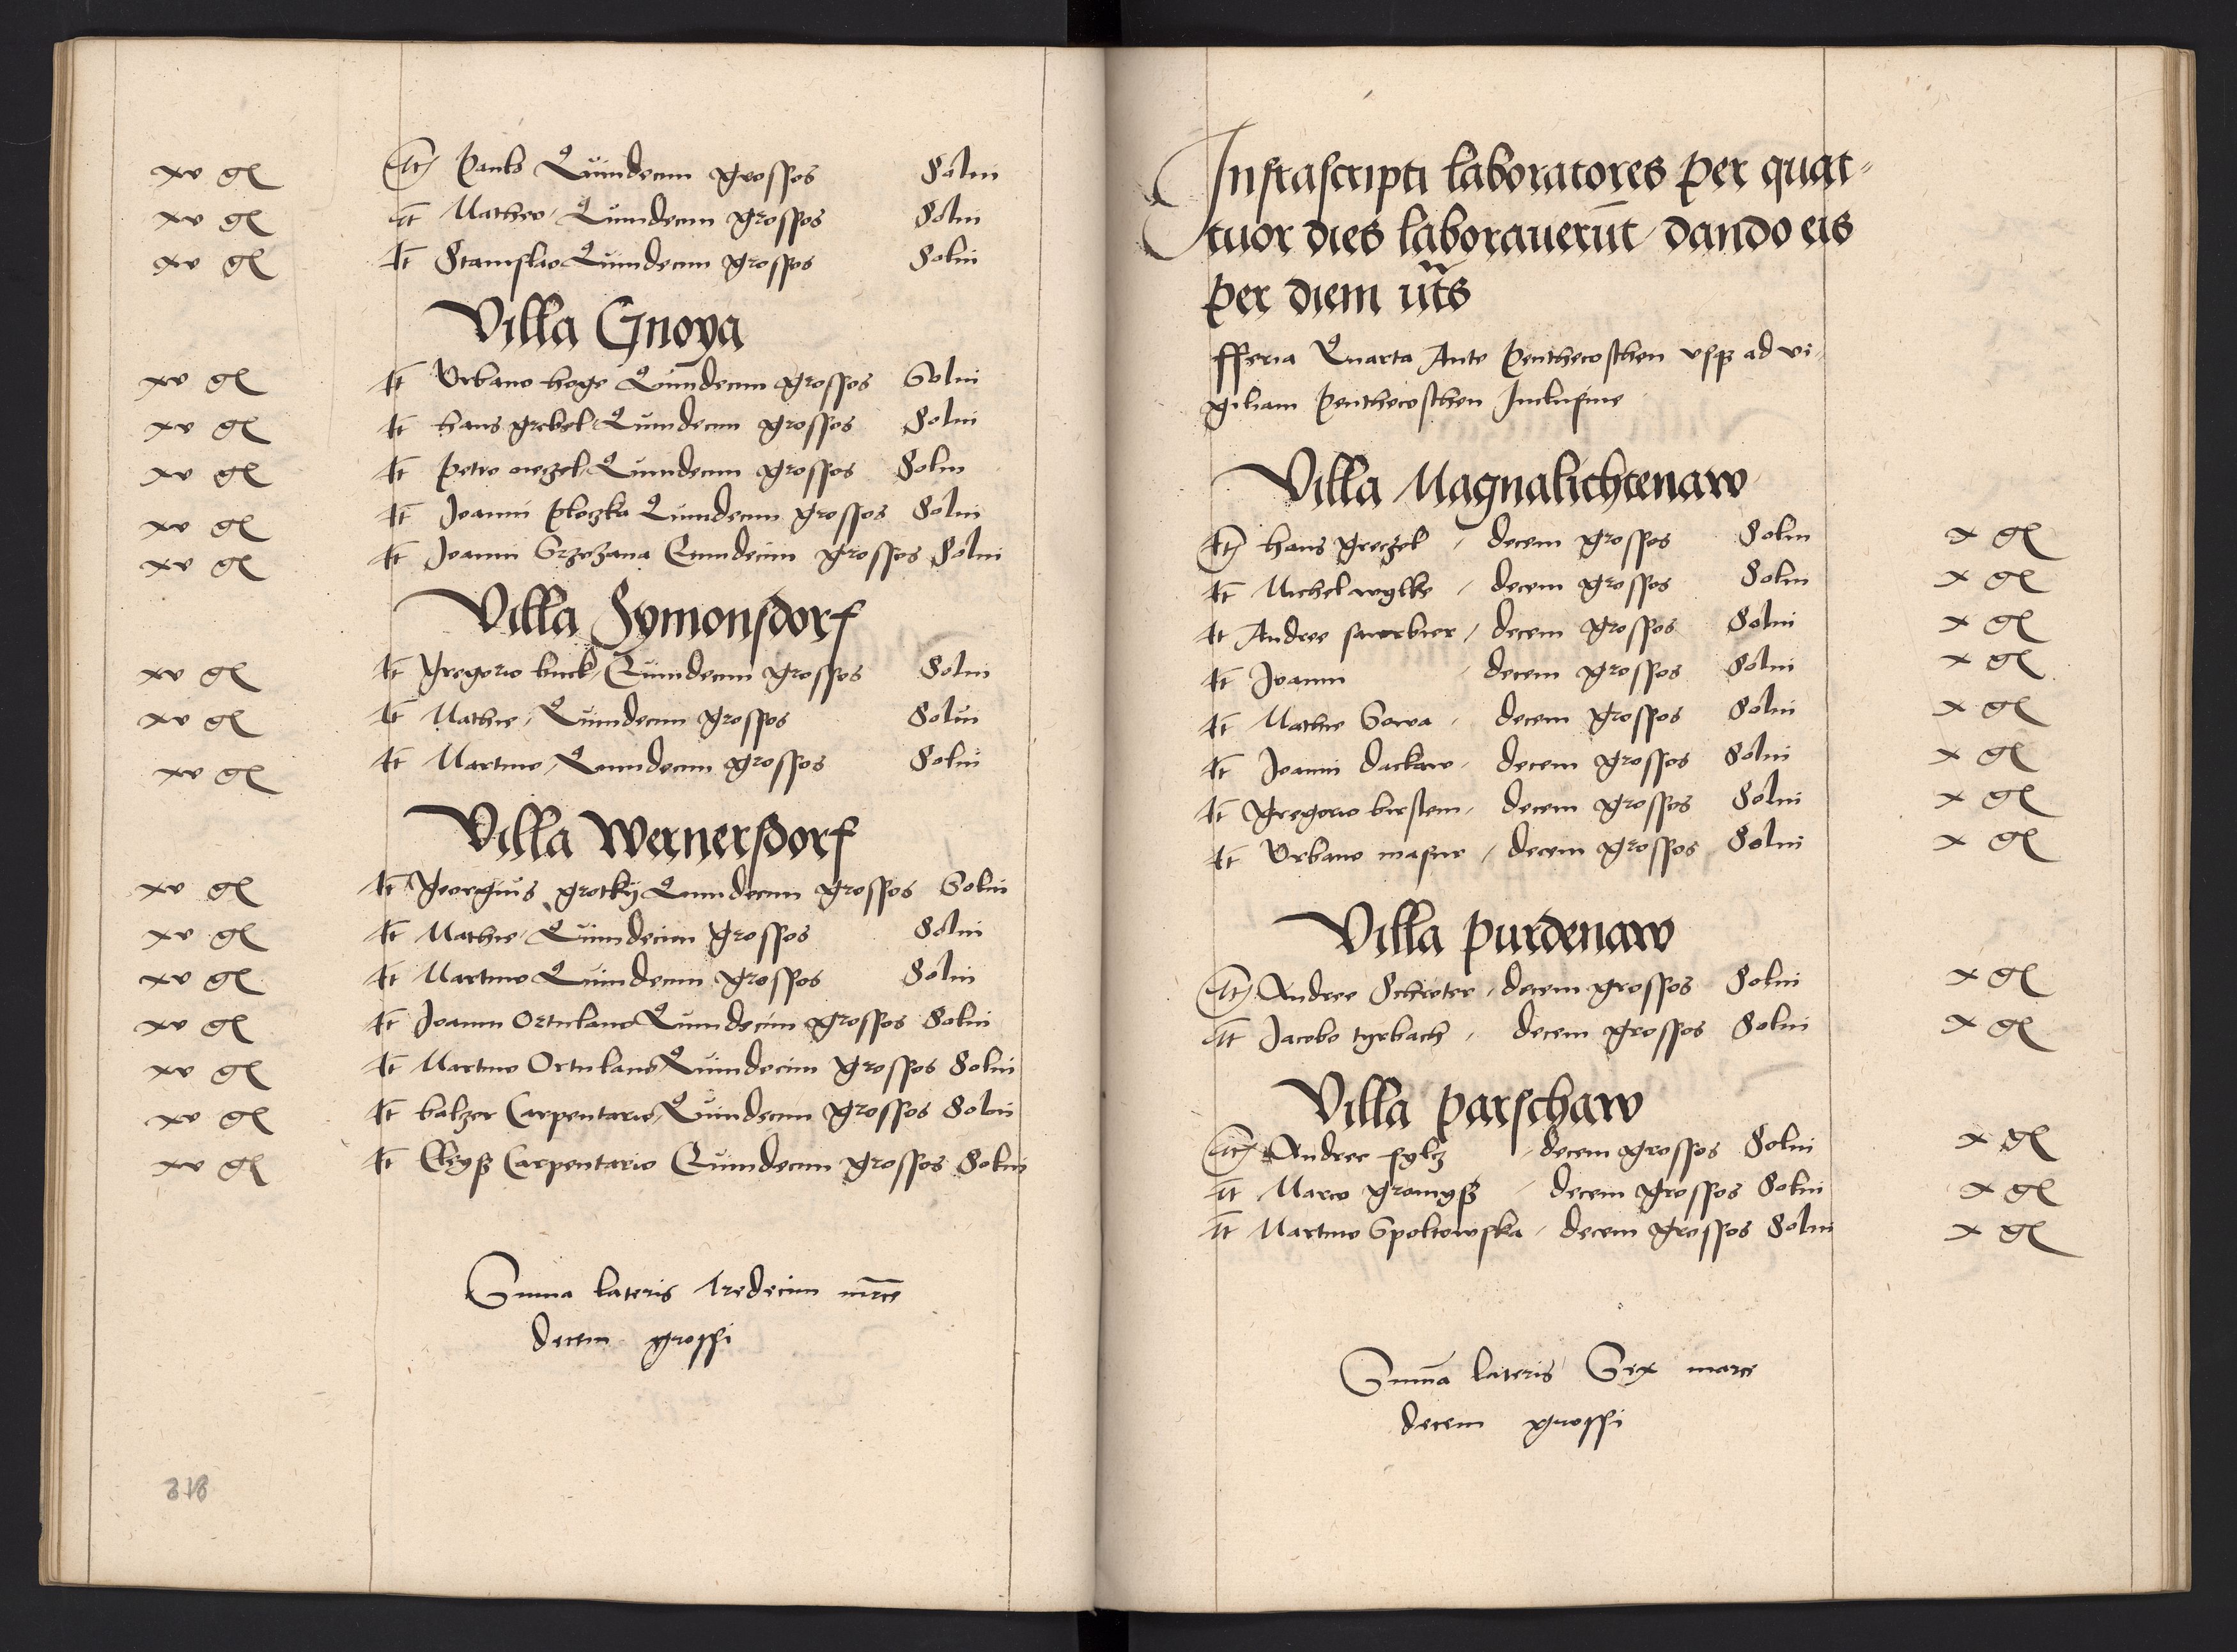 xv gl It Paulo Quindecim grossos Solui
xv gl It Matheo Quindecim grossos Solui
xv gl It Stanislao Quindecim grossos Solui
Villa Gnoya
xv gl It Urbano hoge Quindecim grossos Solui
xv gl It hans grebel Quindecim grossos Solui
xv gl It Petro Quindecim grossos Solui
xv gl It Joanni Ploczka Quindecim grossos Solui
xv gl It Joanni Grzezana Quindecim grossos Solui
Villa Symonsdorf
xv gl It Gregorio kuck Quindecim grossos Solui
xv gl It Mathie Quindecim grossos Solui
xv gl It Martino Quindecim grossos Solui
Villa Wernersdorf
xv gl It Georgius grotky Quindecim grossos Solui
xv gl It Mathie Quindecim grossos Solui
xv gl It Martino Quindecim grossos Solui
xv gl It Joanni Ortulano Quindecim grossos Solui
xv gl It Martino Ortulano Quindecim grossos Solui
xv gl It balzer Carpentario Quindecim grossos Solui
xv gl It Carpentario Quindecim grossos Solui
Suma lateris Tredecim mrce
decem grossi
318
Infrascripti laboratores per quat-
tuor dies laborauerūt dando eis
per diem ut̃s
fferia Quarta Ante Penthecosthen usqȝ ad vi-
giliam Penthecosthen Inclusiue
Villa Magnalichtenaw
It hans greczel decem grossos Solui x gl
It Michel wylke decem grossos Solui x gl
It Andree sawrbier decem grossos Solui x gl
It Joanni decem grossos Solui x gl
It Mathie Sowa decem grossos Solui x gl
It Joanni dackaw decem grossos Solui x gl
It Gregorio birstein decem grossos Solui x gl
It Urbano masur decem grossos Solui x gl
Villa purdenaw
It Andree Schroter decem grossos Solui x gl
It Jacobo tyrbach decem grossos Solui x gl
Villa parschaw
It Andree fylcz decem grossos Solui x gl
It Marco gromyß decem grossos Solui x gl
It Martino Spoltowska decem grossos Solui x gl
Sum̄a lateris Sex marce
decem grossi